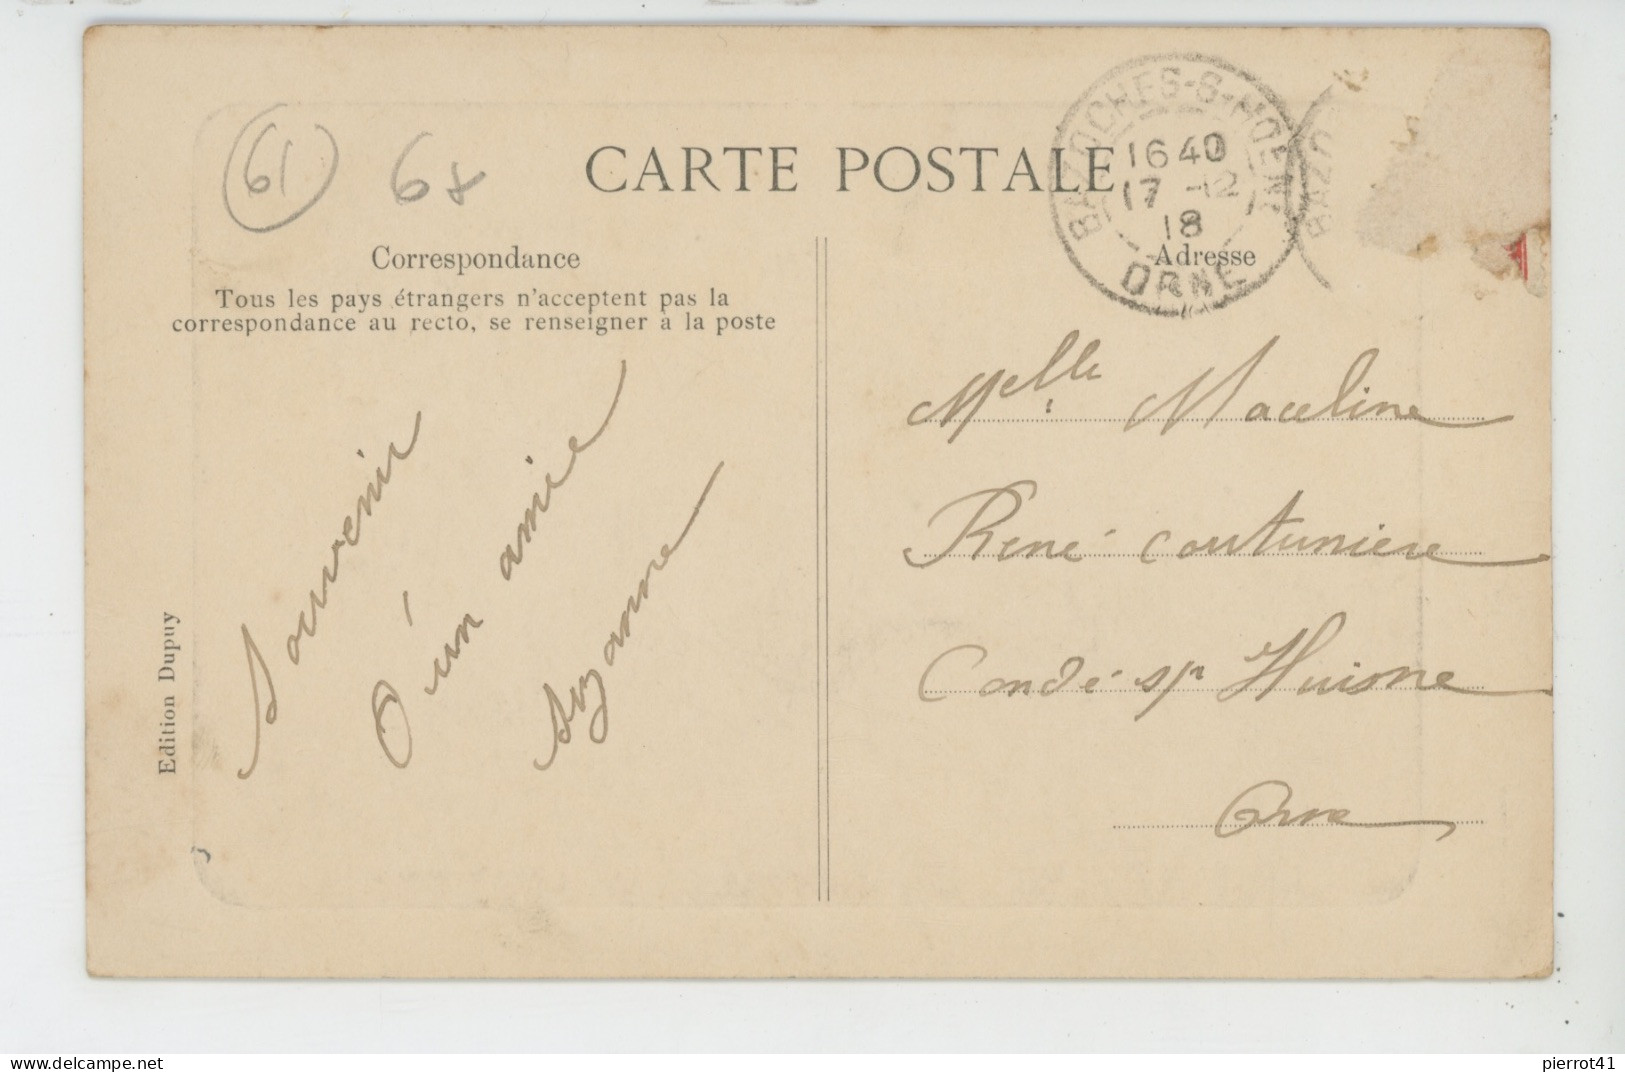 61
6x
CARTE POSTALE
BAZOCHES-S-HOËNE
1640
17 -12
18
ORNE
BAZO
Correspondance
Adresse
Tous les pays étrangers n'acceptent pas la
correspondance au recto, se renseigner à la poste
Souvenir
d'un amie
Suzanne
Edition Dupuy
Melle Maceline
René couturière
Condé sr Huisne
Orne
www.delcampe.net
pierrot41